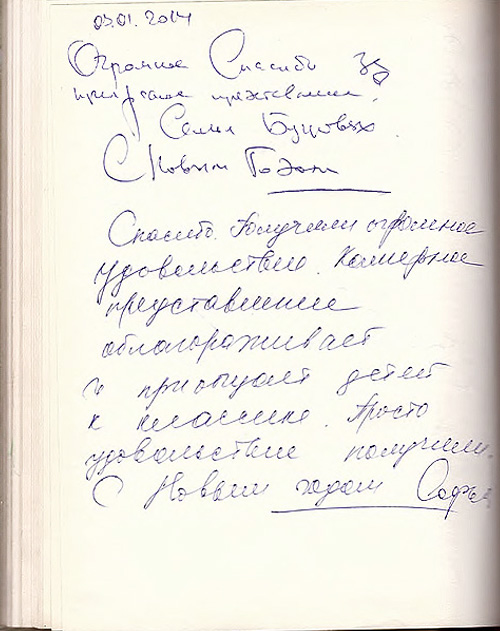 03.01.2014
Огромное Спасибо за
прекрасное представление.
Семья Буцовых.
С Новым Годом
Спасибо. Получили огромное
удовольствие. Камерное
представление
облагораживает
и приобщает детей
к классике. Просто
удовольствие получили.
С Новым годом Софья